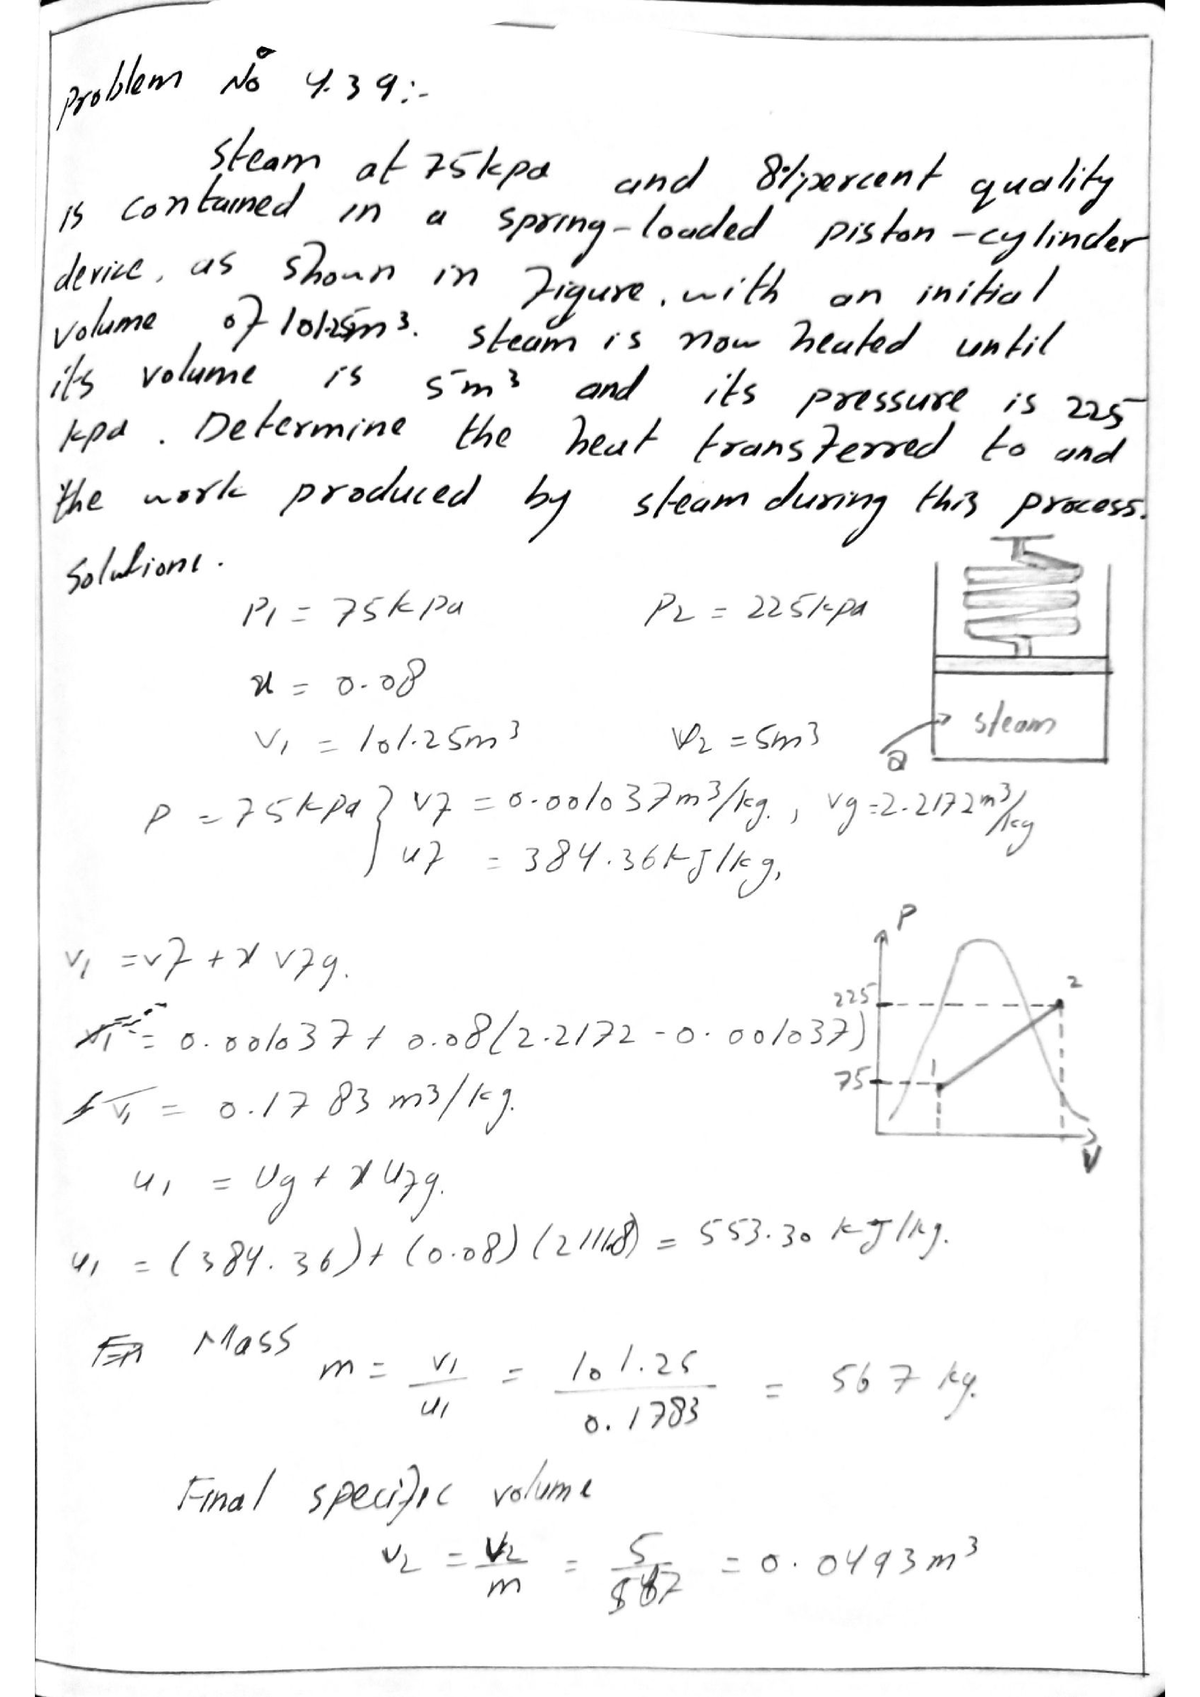 Problem No 4.39:-
Steam at 75kpa and 8% percent quality
is contained in a spring-loaded piston-cylinder
device, as shown in Figure, with an initial
volume of 101.25m³. Steam is now heated until
its volume is 5m³ and its pressure is 225
kpa. Determine the heat transferred to and
the work produced by steam during this process.
Solution.
P1 = 75kpa P2 = 225kpa
x = 0.08
V1 = 101.25m³ V2 = 5m³
steam
Q
P = 75kpa } vf = 0.001037m³/kg., vg=2.2172m³/kg
uf = 384.36kJ/kg,
v1 = vf + x vfg.
= 0.001037 + 0.08(2.2172 - 0.001037)
v1 = 0.1783 m³/kg.
P
225
75
1
2
V
u1 = ug + x ufg.
u1 = (384.36) + (0.08) (2111.8) = 553.30 kJ/kg.
Mass m = v1/u1 = 101.25/0.1783 = 567 kg.
Final specific volume
v2 = V2/m = 5/567 = 0.0493m³